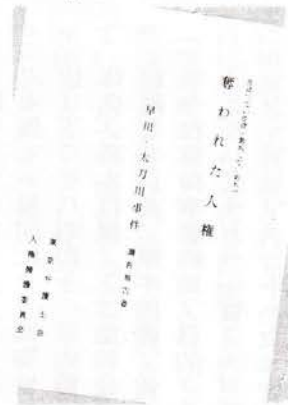 奪われた人権
早川・太刀川事件 調査報告書
東京弁護士会
人権擁護委員会